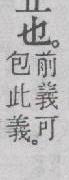 也。
前義可
包此義。